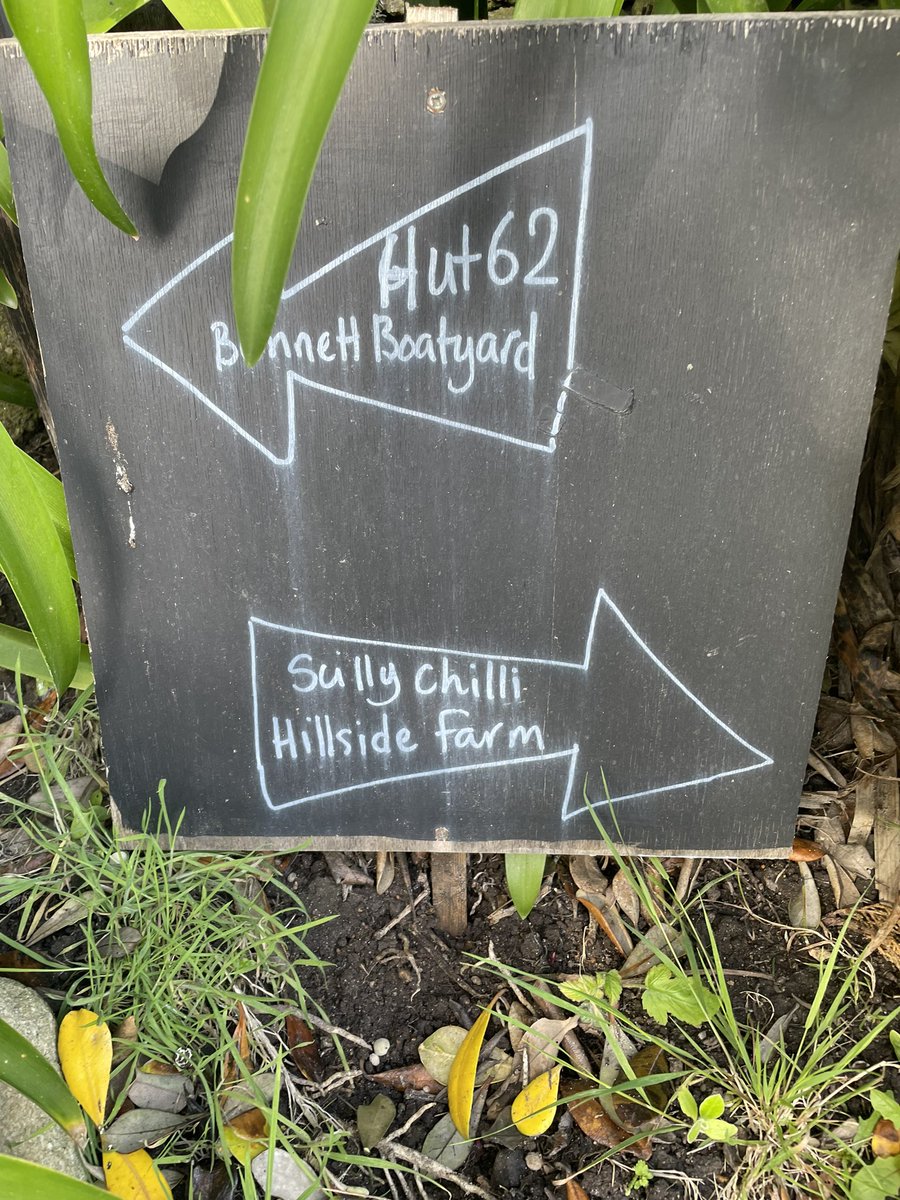 Hut 62
Bennett Boatyard
Scilly chilli
Hillside Farm